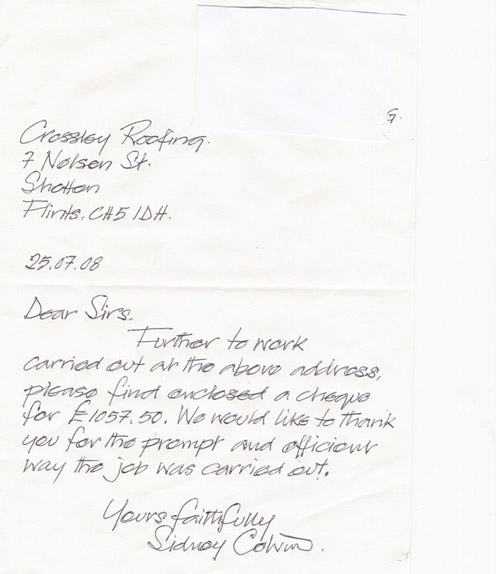 G.
Crossley Roofing.
7 Nelson St.
Shotton
Flints. CH5 1DH.
25.07.08
Dear Sirs.
Further to work
carried out at the above address,
please find enclosed a cheque
for £1057.50. We would like to thank
you for the prompt and efficient
way the job was carried out.
Yours faithfully
Sidney